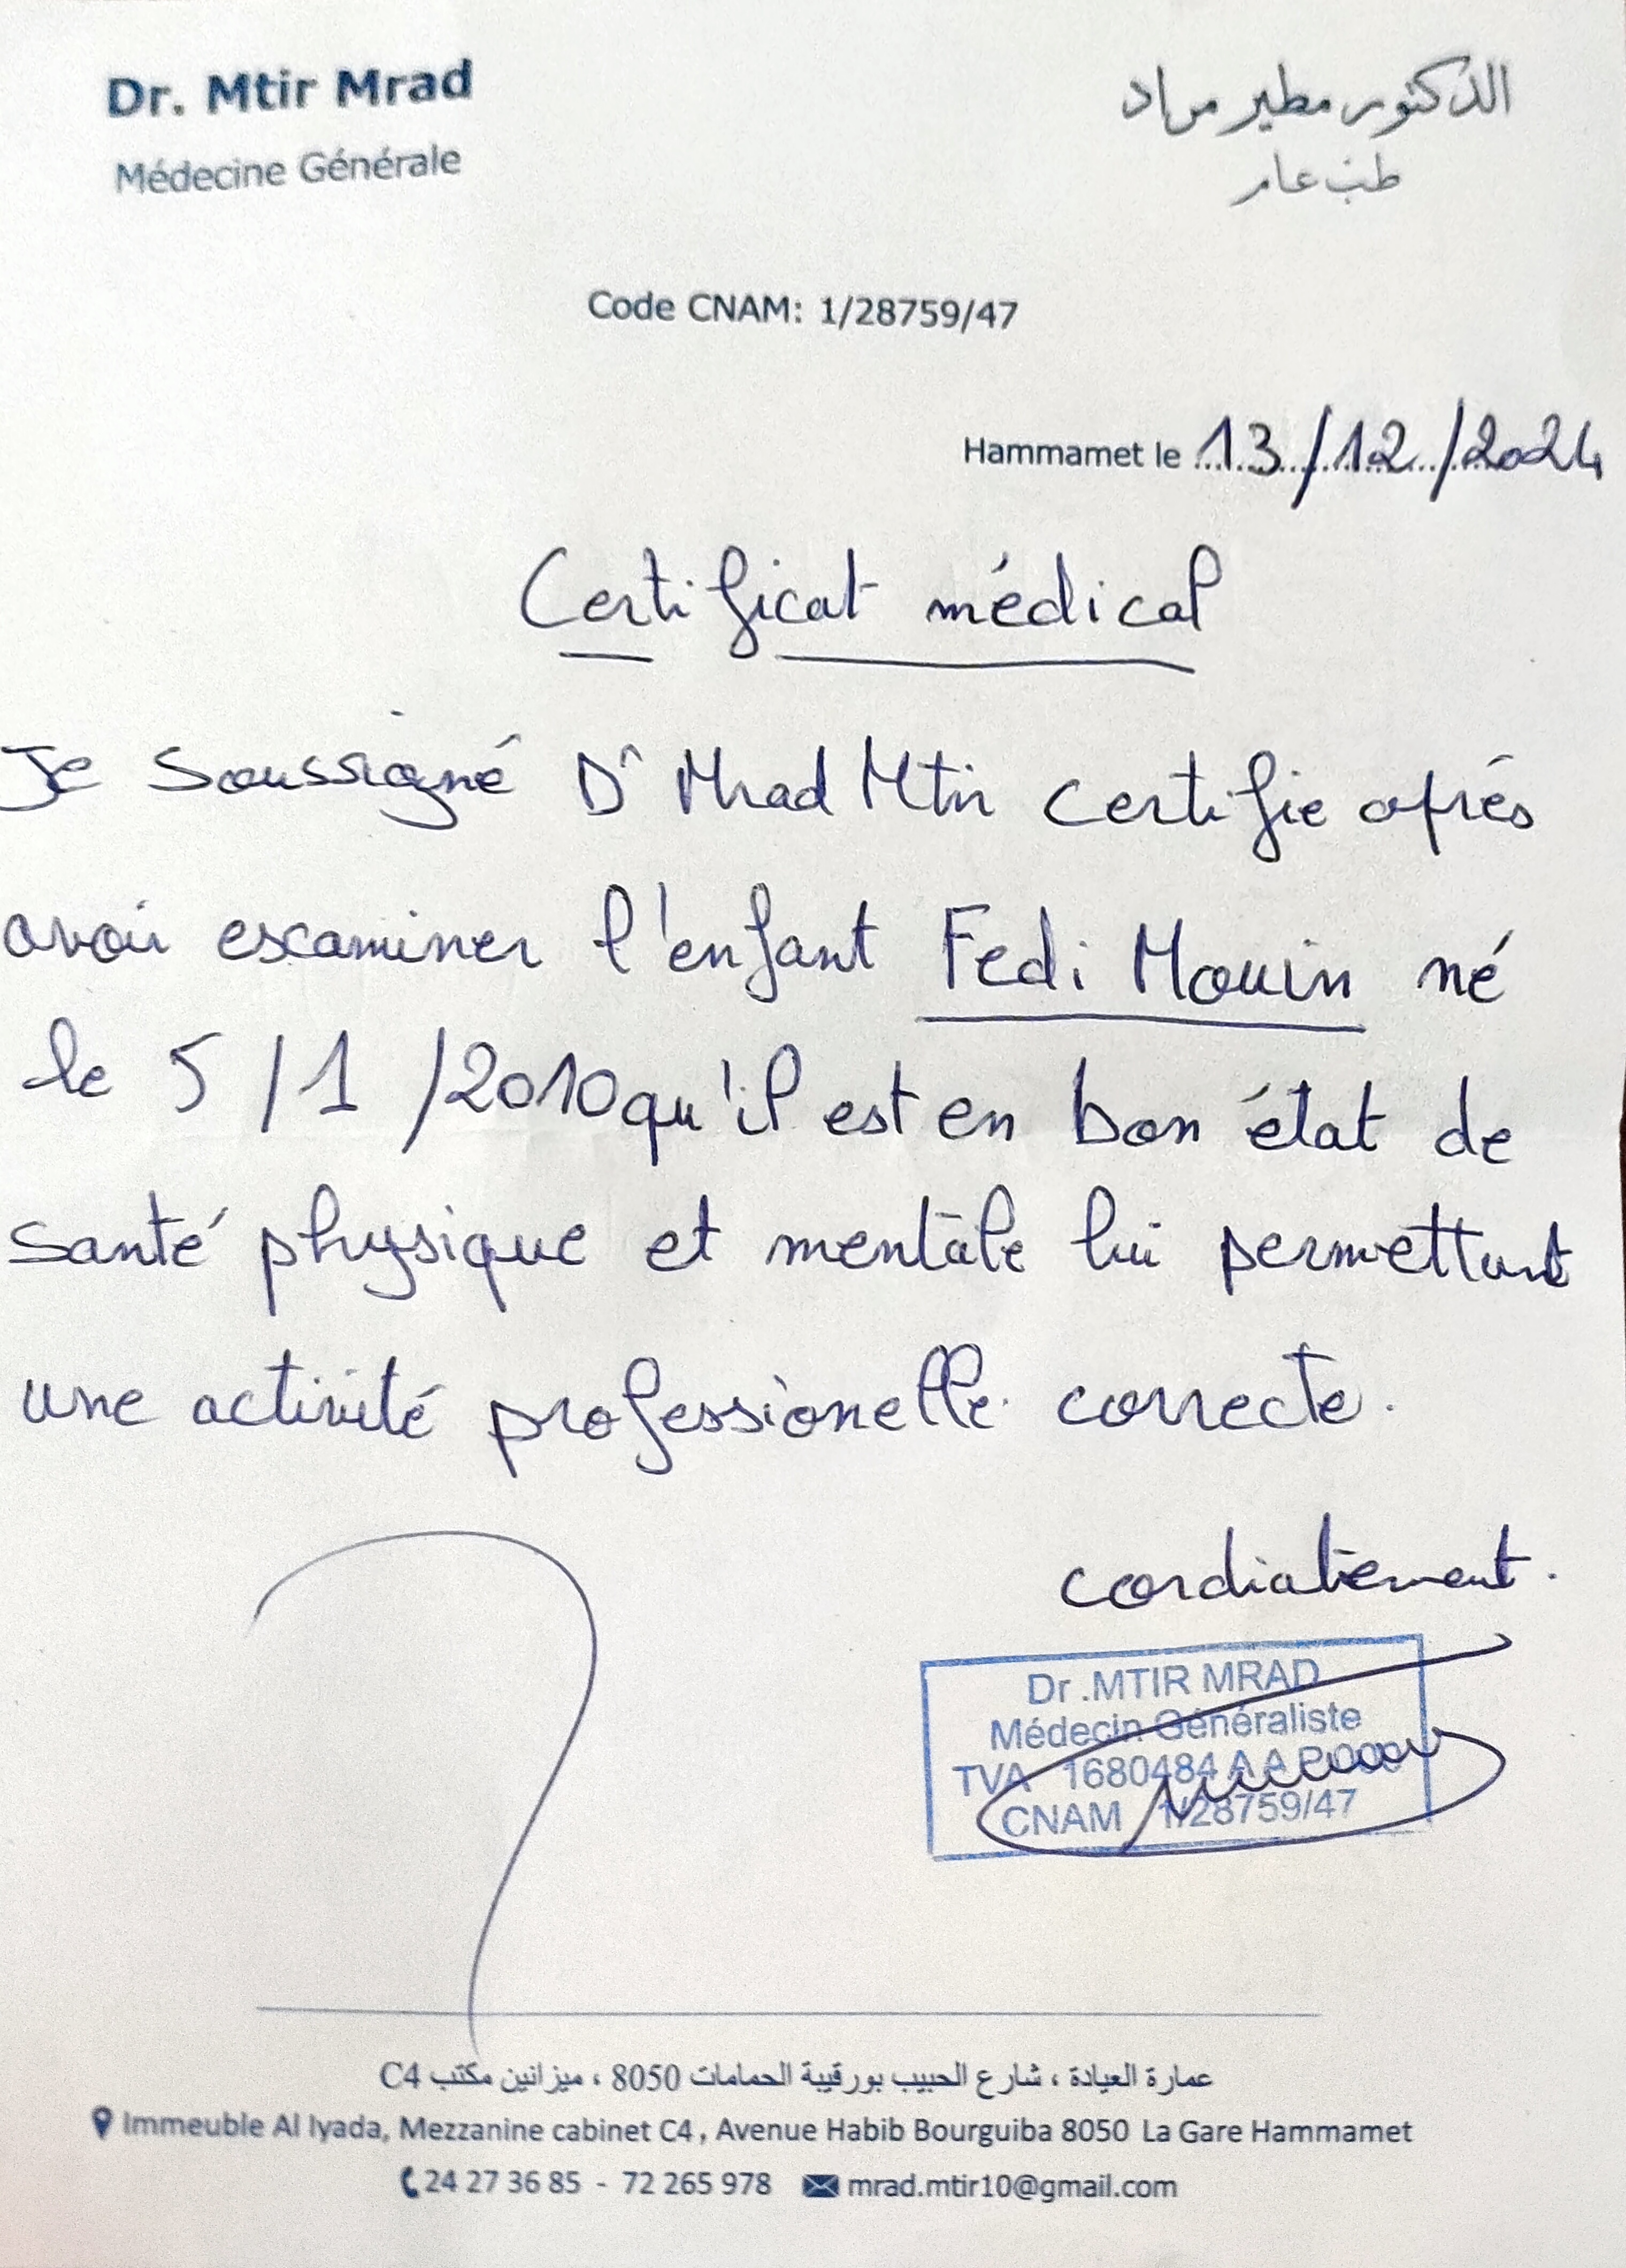 Dr. Mtir Mrad
Médecine Générale
الدكتور مطير مراد
طب عام
Code CNAM: 1/28759/47
Hammamet le 13/12/2024
Certificat médical
Je soussigné Dr Mrad Mtir certifie aprés
avoir examiner l'enfant Fedi Mouin né
le 5/1/2010 qu'il est en bon état de
santé physique et mentale lui permettant
une activité professionelle correcte.
cordialement.
Dr .MTIR MRAD
Médecin Généraliste
TVA 1680484 A A P 000
CNAM 1/28759/47
عمارة العيادة ، شارع الحبيب بورقيبة الحمامات 8050 ، ميزانين مكتب C4
Immeuble Al Iyada, Mezzanine cabinet C4, Avenue Habib Bourguiba 8050 La Gare Hammamet
24 27 36 85 - 72 265 978 mrad.mtir10@gmail.com